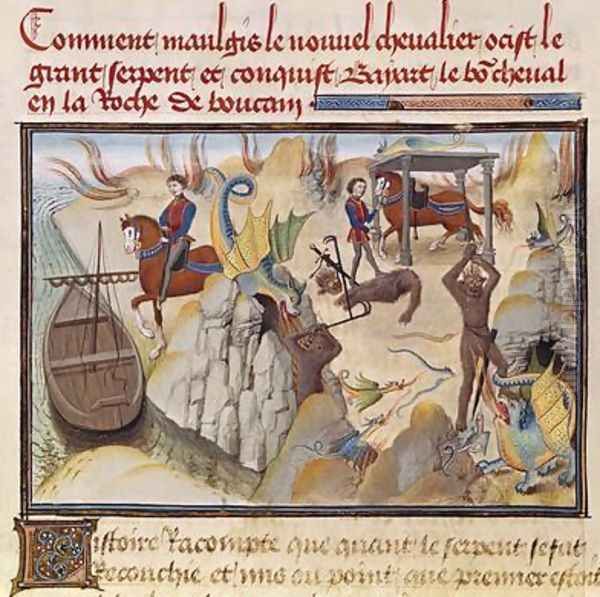 Comment maulgis le nouuel cheualier ocist le
grant serpent et conquist Bayart le bō cheual
en la Roche de boucam
Listoire Racompte que quant le serpent se fut
Recouchie et mis ou point que premier estoit